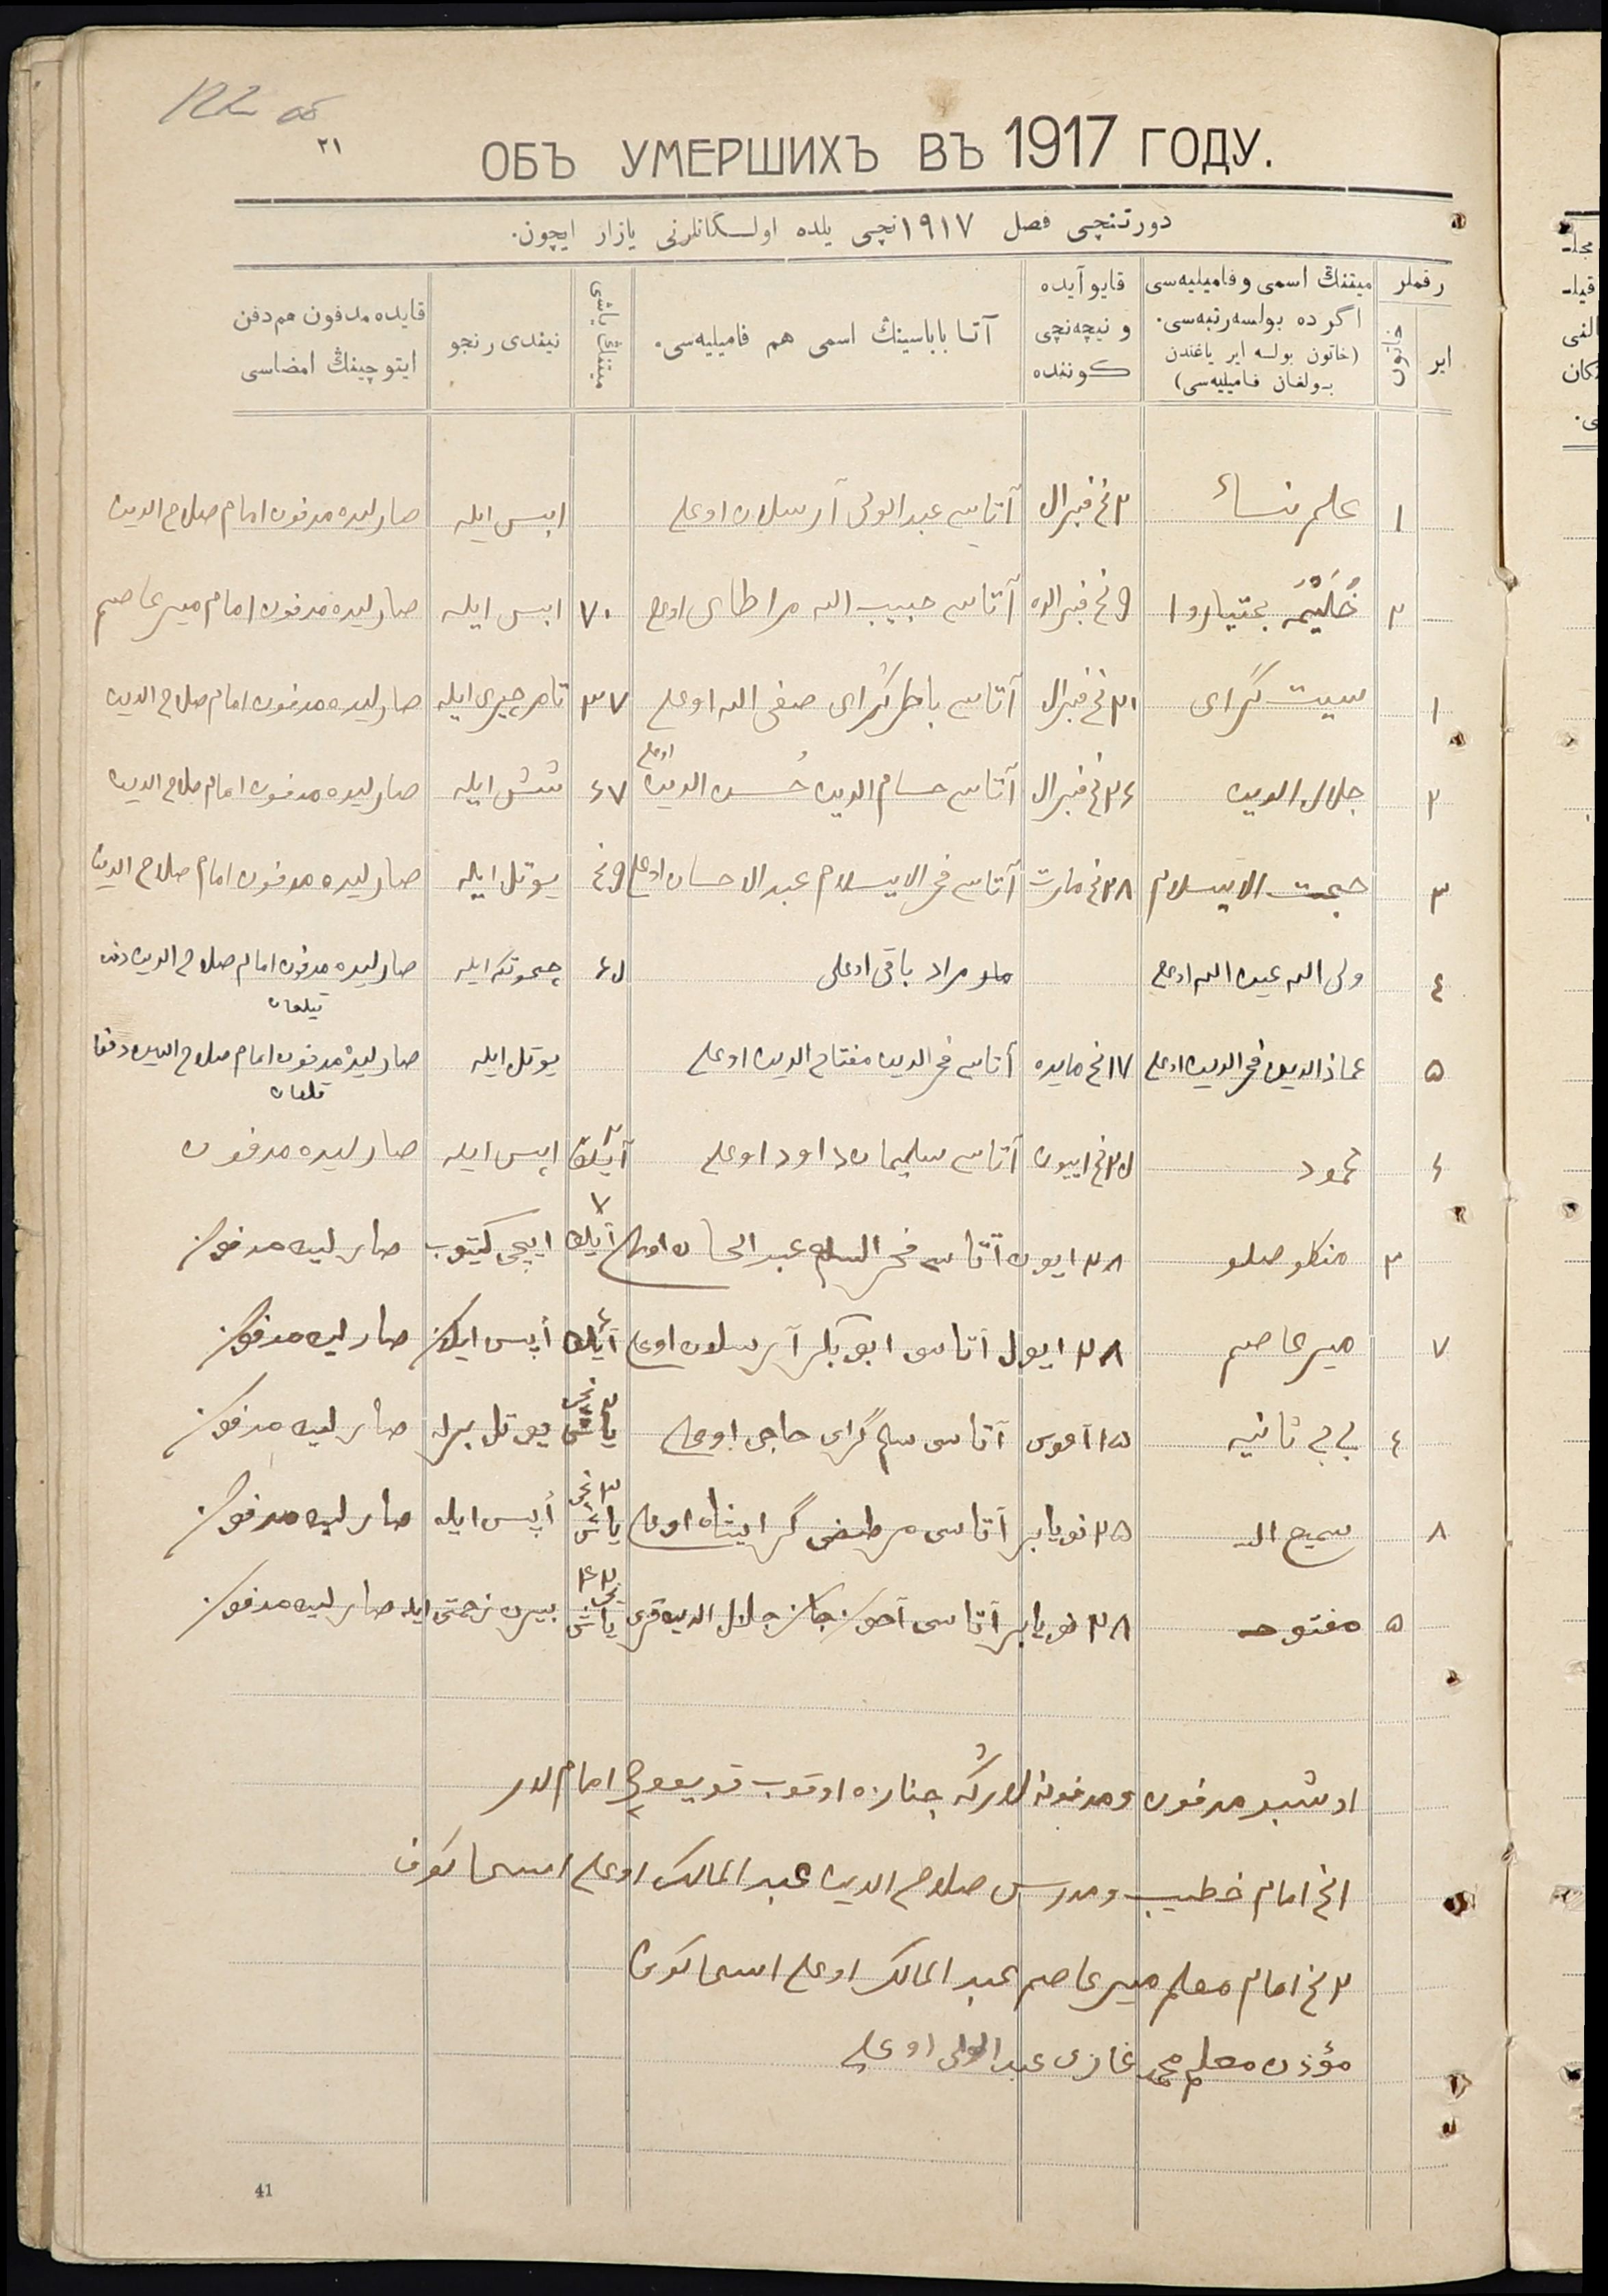 122 об
٢١
ОБЪ УМЕРШИХЪ ВЪ 1917 ГОДУ.
دورتنچى فصل ١٩١٧نچى يلده اولسكانلرنى يازار ايچون.
رقملر
اير
خاتون
ميتنڭ اسمى و فاميليه‌سى
اگر ده بولسه رتبه‌سى.
(خاتون بولسه اير ياغندن
بولغان فاميليه‌سى)
قايو آيده
و نيچه‌نچى
كوننده
آتا باباسينڭ اسمى هم فاميليه‌سى.
ميتنڭ ياشى
نيندى رنجو
قايده مدفون هم دفن
ايتوچينڭ امضاسى
١ علم نساء ٢نج فبرال آتاسى عبد الولى آرسلان اوغلى ايس ايله صارليده مدفون امام صلاح الدين
٢ حَلَيْمَه بختياروا ٩نج فبرالده آتاسى حبيب الله مراطاى اوغلى ٧٠ ايس ايله صارليده مدفون امام مير عاصم
١ سيت گراى ٢١نج فبرال آتاسى باطرگراى صفى الله اوغلى ٣٧ تامر جيرى ايله صارليده مدفون امام صلاح الدين
٢ جلال الدين ٢٦نج فبرال آتاسى حسام الدين حُسن الدين اوغلى ٦٧ شش ايله صارليده مدفون امام صلاح الدين
٣ حجت الاسلام ٢٨نج مارت آتاسى فخر الاسلام عبد الاحسان اوغلى ٤٩ يوتل ايله صارليده مدفون امام صلاح الدين
٤ ولى الله عبد الله اوغلى ملو مراد باقى اوغلى ٦٥ چحوتكه ايله صارليده مدفون امام صلاح الدين دفن
قيلغان
٥ عماذ الدين فخر الدين اوغلى ١٧نج مايده آتاسى فخر الدين مفتاح الدين اوغلى يوتل ايله صارليده مدفون امام صلاح الدين دفن
قلغان
٦ محمود ٢٥نج اييون آتاسى سليمان داود اوغلى ٢ آيلق ايس ايله صارليده مدفون
٣ منكلو صلو ٢٨ ايون آتاسى فخر السلام عبد الحسان اوغلى ٧ آيلق ايچى كيتوب صارليده مدفون
٧ مير عاصم ٢٨ ايول آتاسى ابو بكر آرسلان اوغلى ٤ آيلق ايس ايلان صارليده مدفون
٤ بى بى ثانيه ١٥ آغوس آتاسى سليم گراى حاجى اوغلى ٢نجى ياشى يوتل برله صارليده مدفون
٨ سميع الله ٢٥ نويابر آتاسى مرطضى گرايشاه اوغلى ٣نجى ياش ايس ايله صارليده مدفون
٥ مفتوحه ٢٨ نويابر آتاسى آحون جان جلال الدين قزى نجى ياش بيرن زحمتى ايله صارليده مدفون
اوشبو مدفون و مدفونه لارگه جنازه اوقوب قويغوچى امام لار
١نج امام خطيب و مدرس صلاح الدين عبد المالك اوغلى اسحاكوف
٢نج امام معلم مير عاصم عبد المالك اوغلى اسحاكوف
مؤذن معلم محمد غازى عبد الولى اوغلى
41